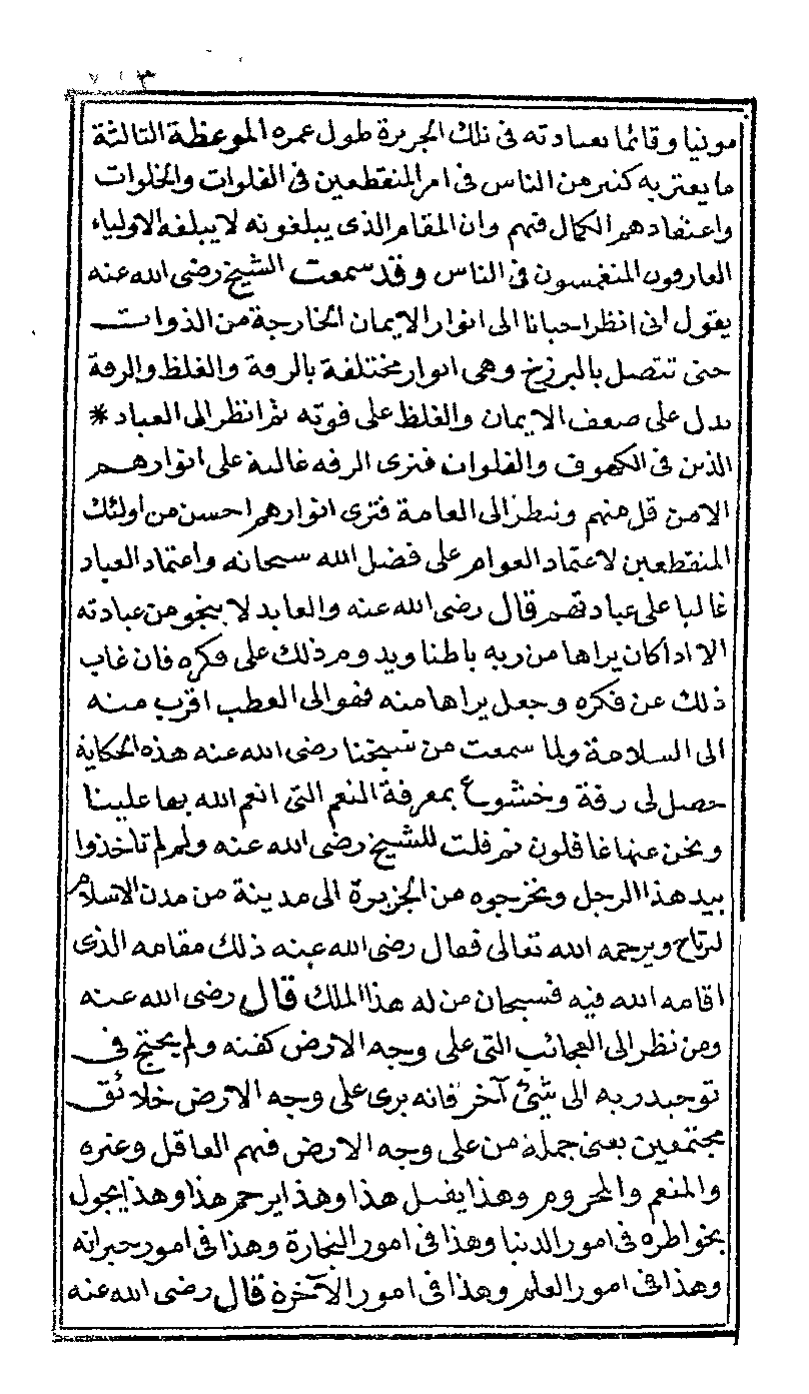 مونيا وقائما بعبادته فى تلك الجزيرة طول عمره الموعظة الثالثة
ما يعتر به كثير من الناس فى امر المنقطعين فى الفلوات والخلوات
واعتقادهم الكمال فيهم وان المقام الذى يبلغونه لا يبلغه الاولياء
العارفون المنغمسون فى الناس وقد سمعت الشيخ رضى الله عنه
يقول انى انظر احيانا الى انوار الايمان الخارجة من الذوات
حتى تتصل بالبرزخ وهى انوار مختلفة بالرقة والغلظ والرقة
تدل على ضعف الايمان والغلظ على قوته ثم انظر الى العباد *
الذين فى الكهوف والفلوات فنرى الرقه غالبة على انوارهم
الا من قل منهم وننظر الى العامة فترى انوارهم احسن من اولئك
المنقطعين لاعتماد العوام على فضل الله سبحانه واعتماد العباد
غالبا على عبادتهم قال رضى الله عنه والعابد لا ينجو من عبادته
الا اذا كان يراها من ربه باطنا ويدوم ذلك على فكره فان غاب
ذلك عن فكره وجعل يراها منه فهو الى العطب اقرب منه
الى السلامة ولما سمعت من شيخنا رضى الله عنه هذه الحكاية
حصل لى رقة وخشوع بمعرفة النعم التى انعم الله بها علينا
ونحن عنها غافلون ثم قلت للشيخ رضى الله عنه ولم لم تاخذوا
بيد هذا الرجل وتخرجوه من الجزيرة الى مدينة من مدن الاسلام
لرتاح ويرحمه الله تعالى فقال رضى الله عنه ذلك مقامه الذى
اقامه الله فيه فسبحان من له هذا الملك قال رضى الله عنه
ومن نظر الى العجائب التى على وجه الارض كفته ولم يحتج فى
توحيد ربه الى شيئ آخر فانه يرى على وجه الارض خلائق
مجتمعين يعنى جملة من على وجه الارض فهم العاقل وغيره
والمنعم والمحروم وهذا يفسل هذا وهذا يرحم هذا وهذا يجول
بخواطره فى امور الدنيا وهذا فى امور التجارة وهذا فى امور حيراته
وهذا فى امور العلم وهذا فى امور الآخرة قال رضى الله عنه